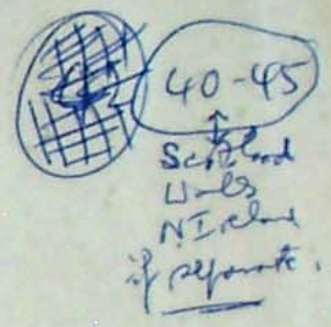 40-45
Scotland
Wales
N Ireland
if separate.